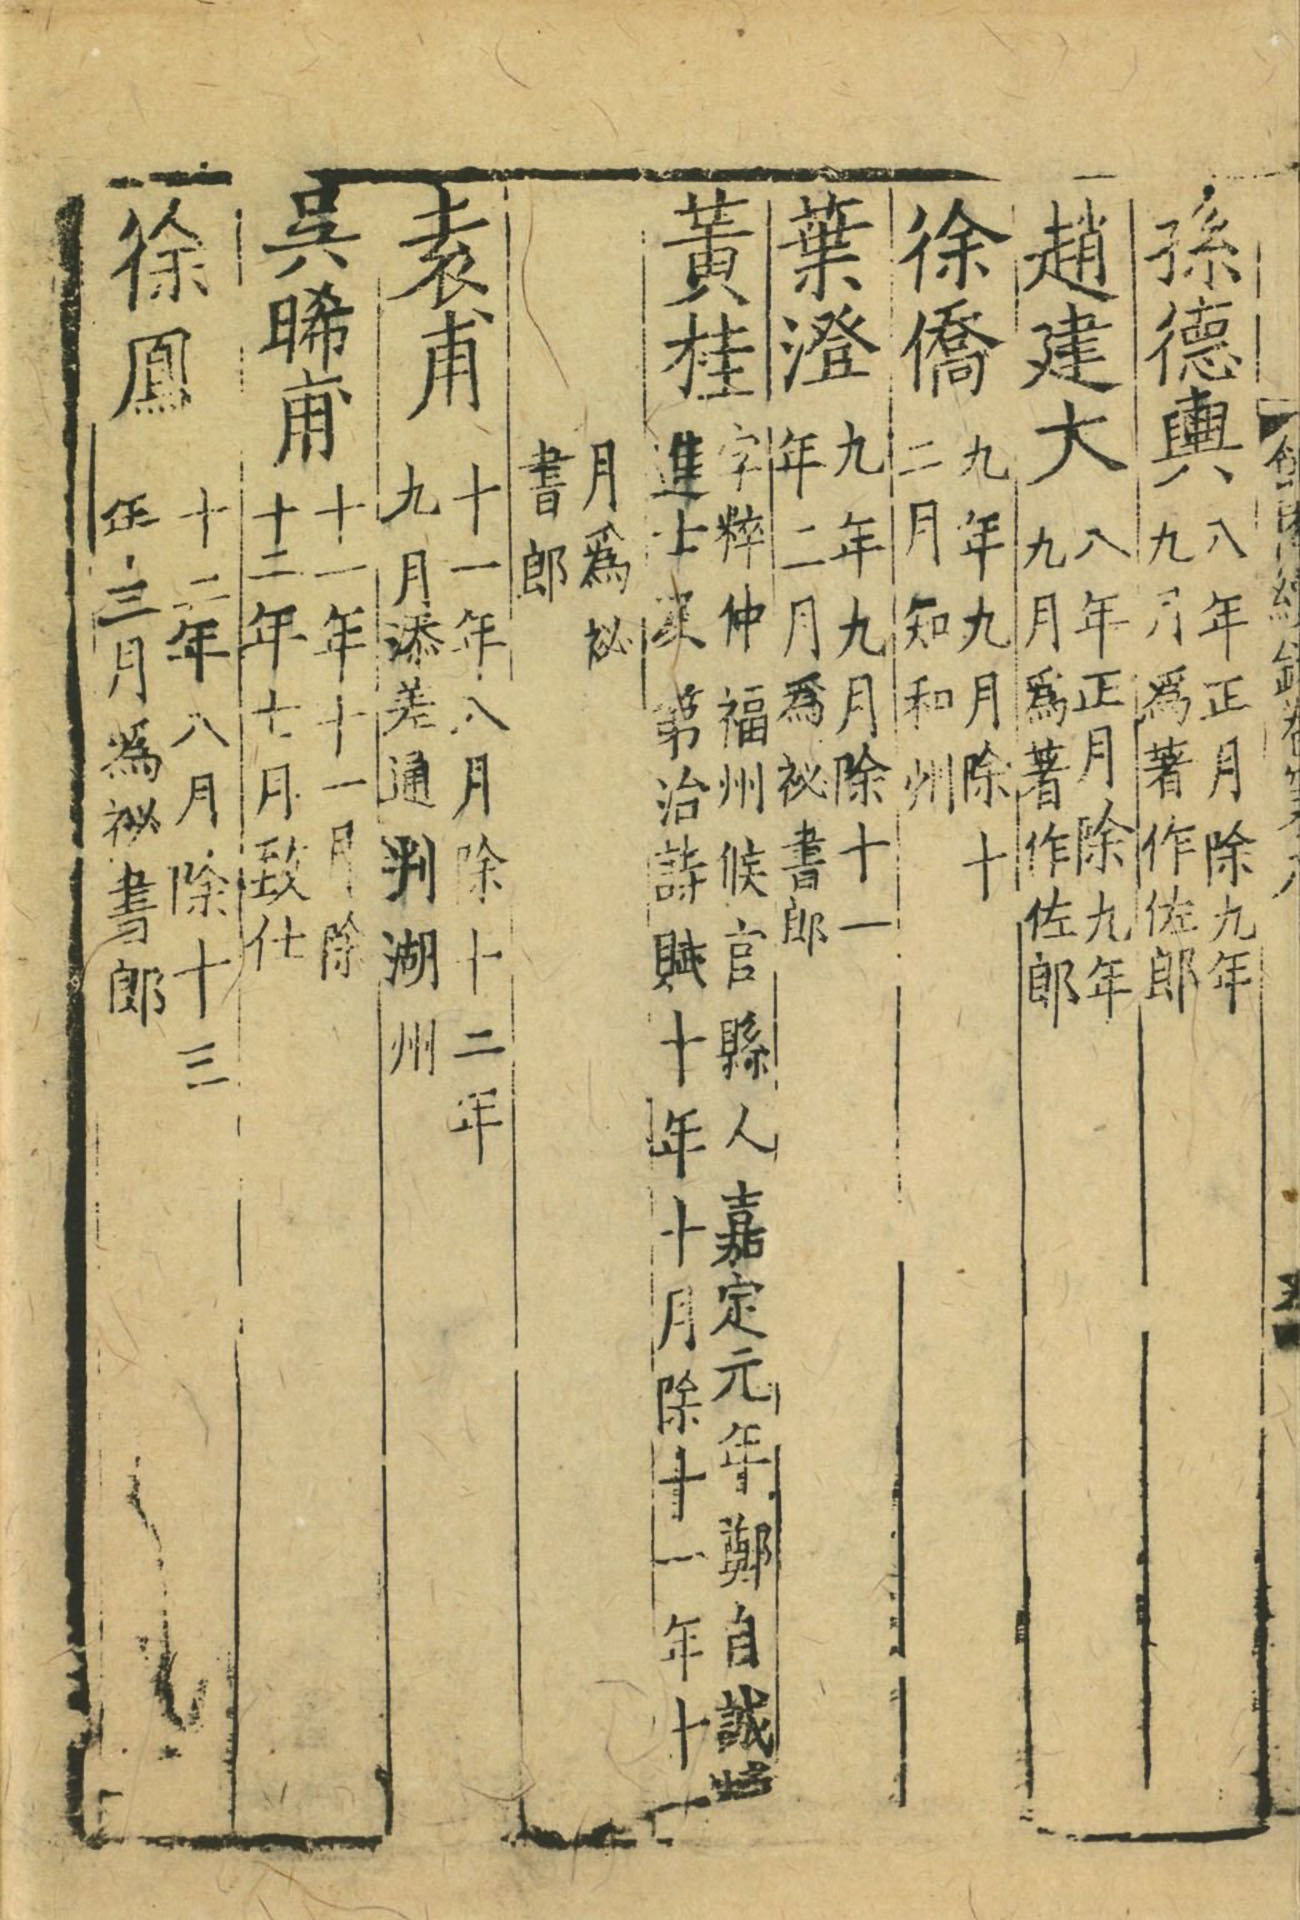 孫德輿
八年正月除九年
九月爲著作佐郎
趙建大
八年正月除九年
九月爲著作佐郎
徐僑
九年九月除十
二月知和州
葉澄
九年九月除十一
年二月爲祕書郎
黃桂
字粹仲福州候官縣人嘉定元年鄭自誠
進士及第治詩賦十年十月除十一年十
月爲祕
書郎
袁甫
十一年八月除十二年
九月添差通判湖州
吳晞甫
十一年十一月除
十二年七月致仕
徐鳳
十二年八月除十三
年三月爲祕書郎